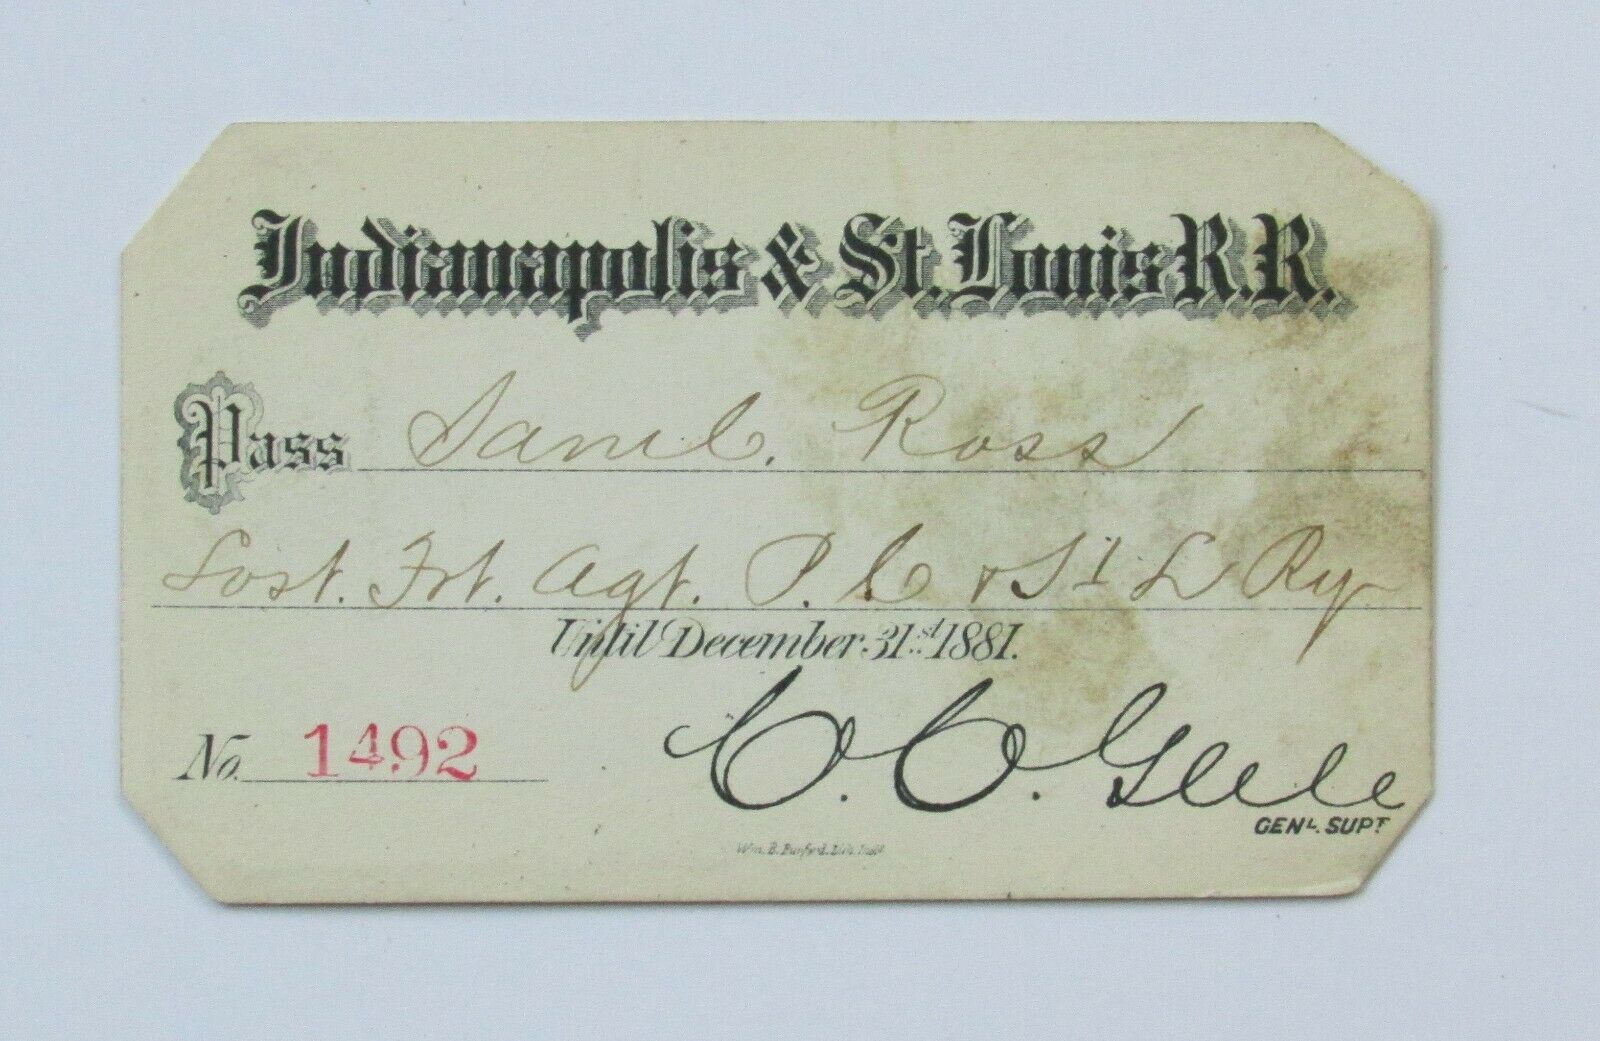 Indianapolis & St. Louis R.R.
Pass Saml. Ross
Lost. Frt. Agt. P. C & St L Ry
Until December 31st. 1881.
No. 1492
C. C. Gale
GENL. SUPT
Wm. B. Burford, Lith. Ind